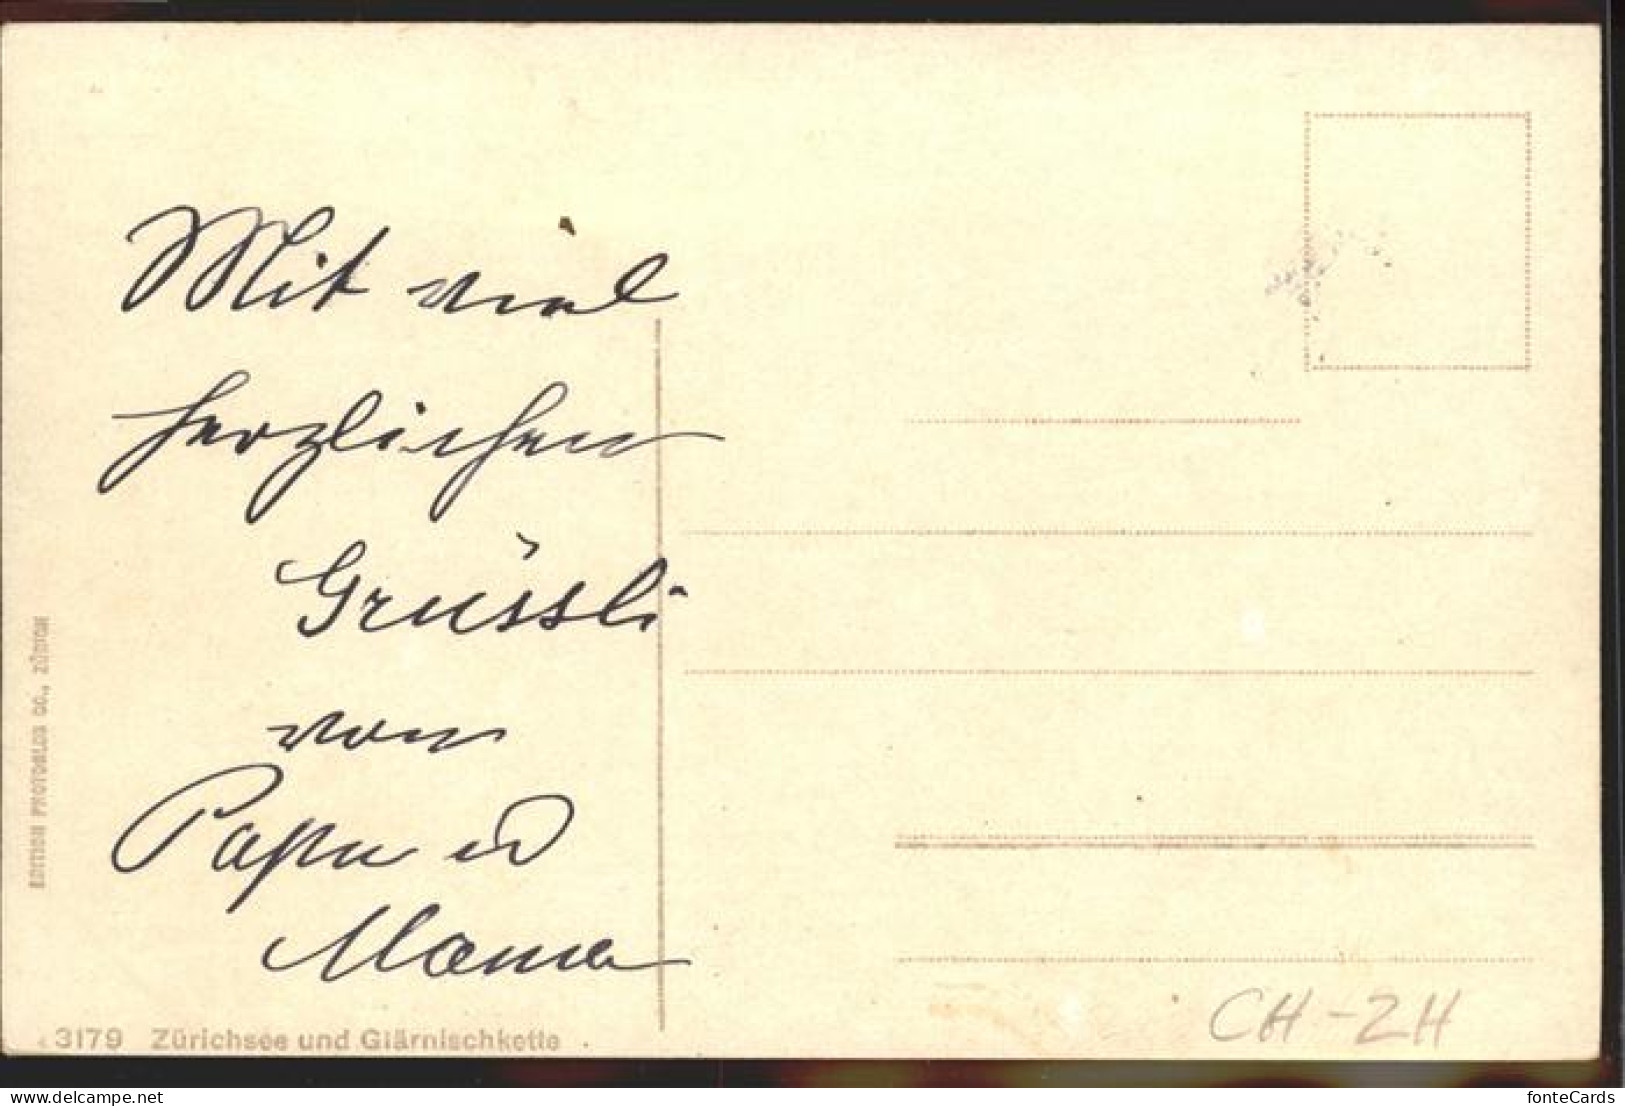 Mit viel
herzlichen
Grüssli
von
Papa u
Mama
EDITION PHOTOGLOB CO., ZÜRICH
3179 Zürichsee und Glärnischkette
CH-ZH
fonteCards